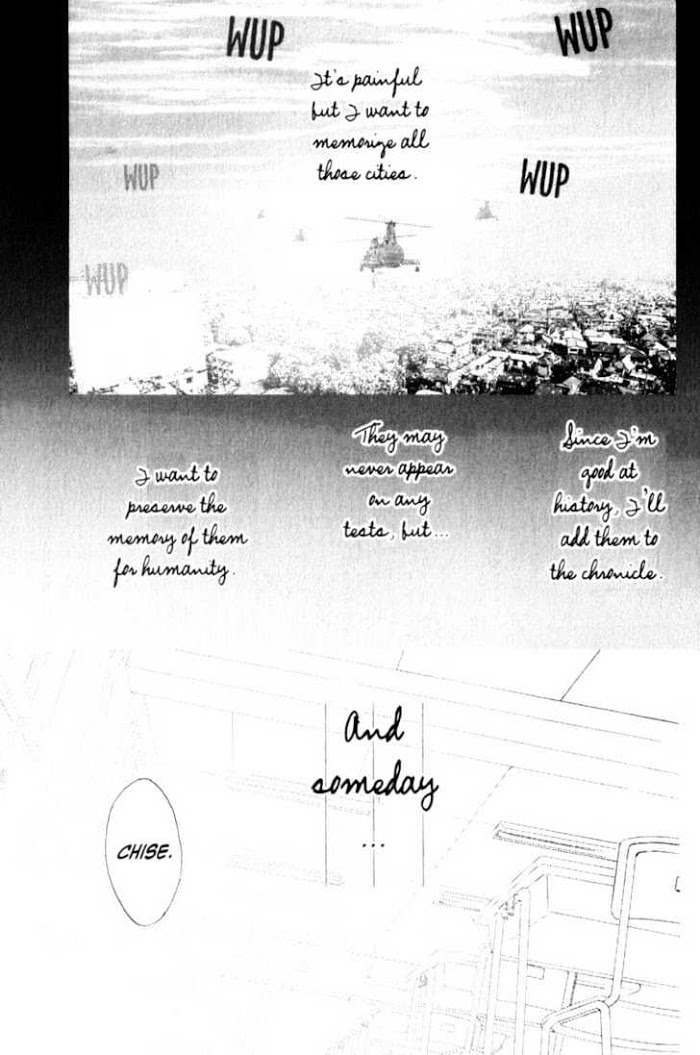 WUP
WUP
It's painful
but I want to
memorize all
those cities.
WUP
WUP
WUP
Since I'm
good at
history, I'll
add them to
the chronicle.
They may
never appear
on any
tests, but...
I want to
preserve the
memory of them
for humanity.
And
someday
...
CHISE.